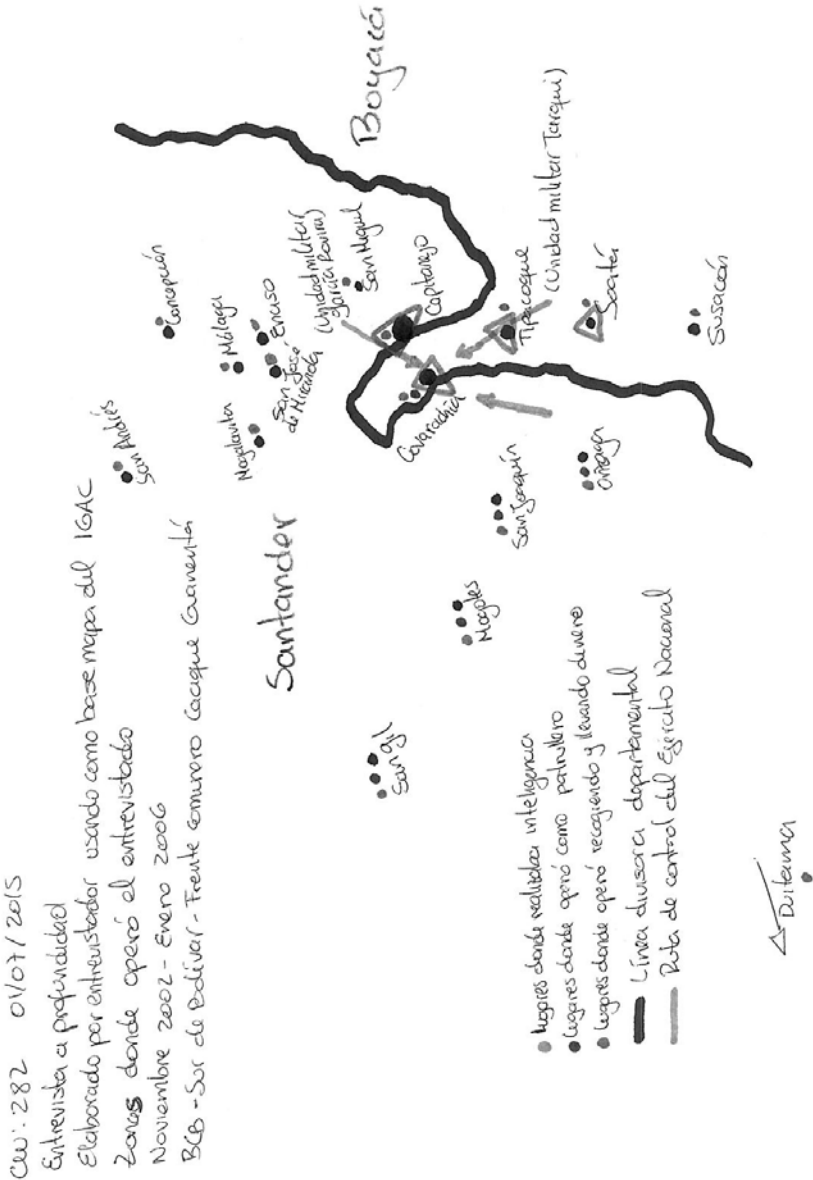 CW: 282   01/07/2015
Entrevista a profundidad
Elaborado por entrevistador usando como base mapa del IGAC
Zonas donde operó el entrevistado
Noviembre 2002 - Enero 2006
BCB - Sur de Bolívar - Frente comunero Cacique Guanentá
San Andrés
Concepción
Málaga
Enciso
San José
de Miranda
Mogotavita
Santander
(Unidad militar
García Rovira)
San Miguel
Capitanejo
Boyacá
Covarachía
Tipacoque
(Unidad militar Tarqui)
Soatá
Susacón
San Joaquín
Onzaga
Mogotes
San gil
lugares donde realizaba inteligencia
lugares donde operó como patrullero
lugares donde operó recogiendo y llevando dinero
Línea divisora departamental
Ruta de control del Ejército Nacional
Duitama